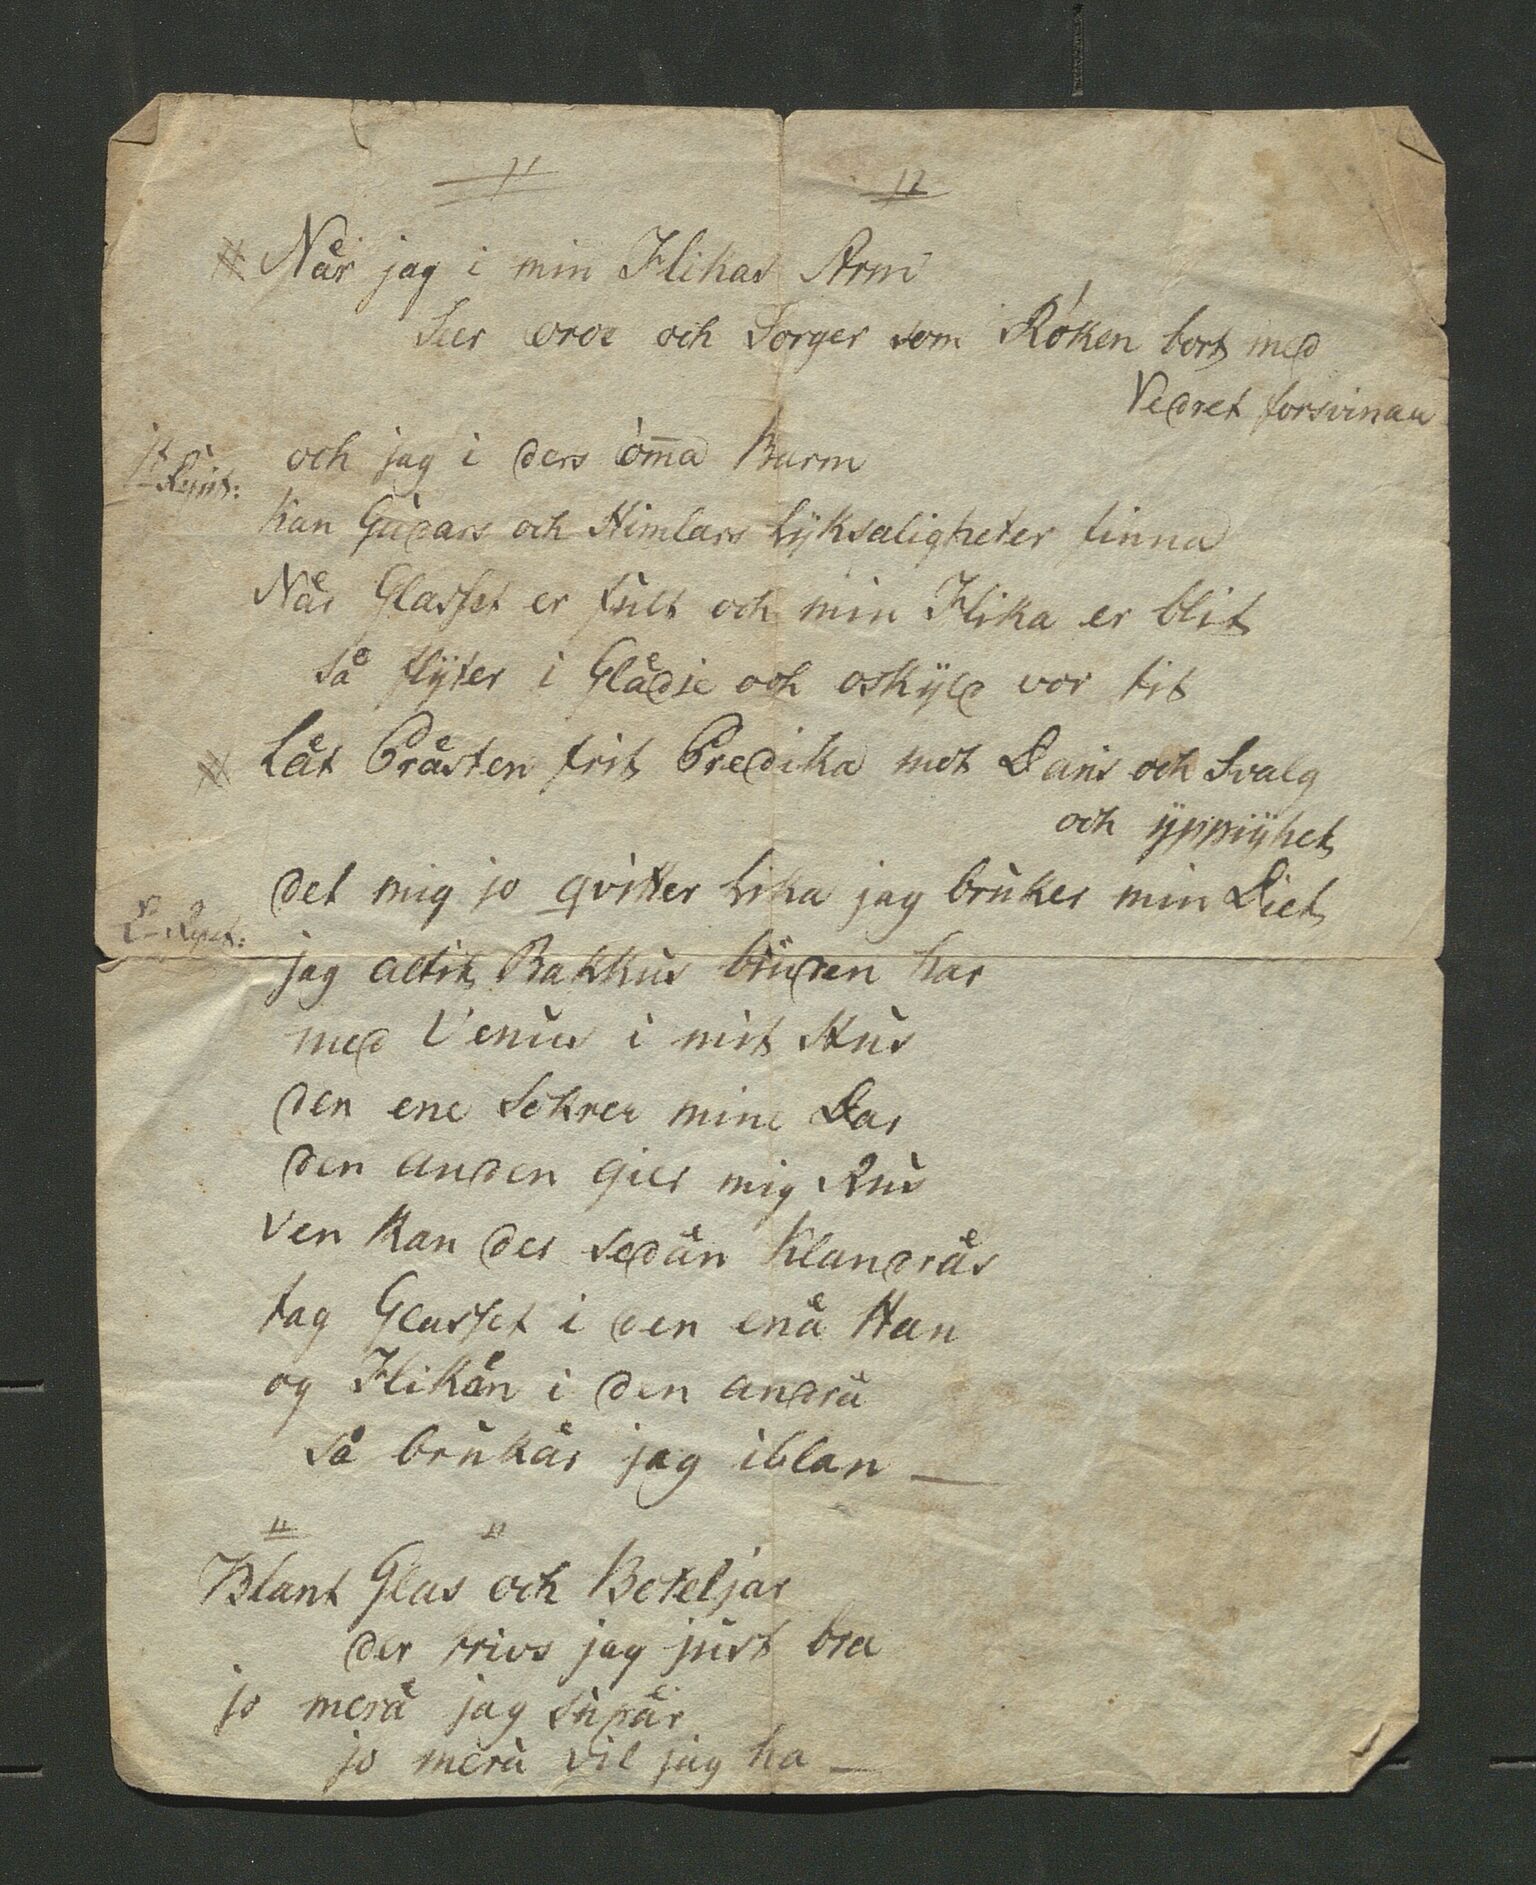 11 12
Når jag i min Flikas Arm
Seer oroe och Sorger som Röken bort med
Vedret forsvinaa
1t Repit:
och jag i ders öm̅a Barm
kan Gudars och Himlars Lyksaligheter finna
Når Glasset er fult och min Flika er blit
så flyter i Glådie och oskyld vor tit
Låt Pråsten frit Predika mot Dans och Svalg
och yppiyhet
det mig jo qvitter lika jag bruker min Diet
2 Repet:
jag altit Bakkus buden har
med Venus i mit Hus
den ene Sekrer mine Dar
den anden gier mig Rus
Ven kan des sedån Klandrås
tag Glasset i den enå Han
og Flikån i den andrå
så brukår jag iblan —
11 11
Blant Glas och Boteljar
der trivs jag just bra
jo merå jag supår
jo merå vil jag ha —